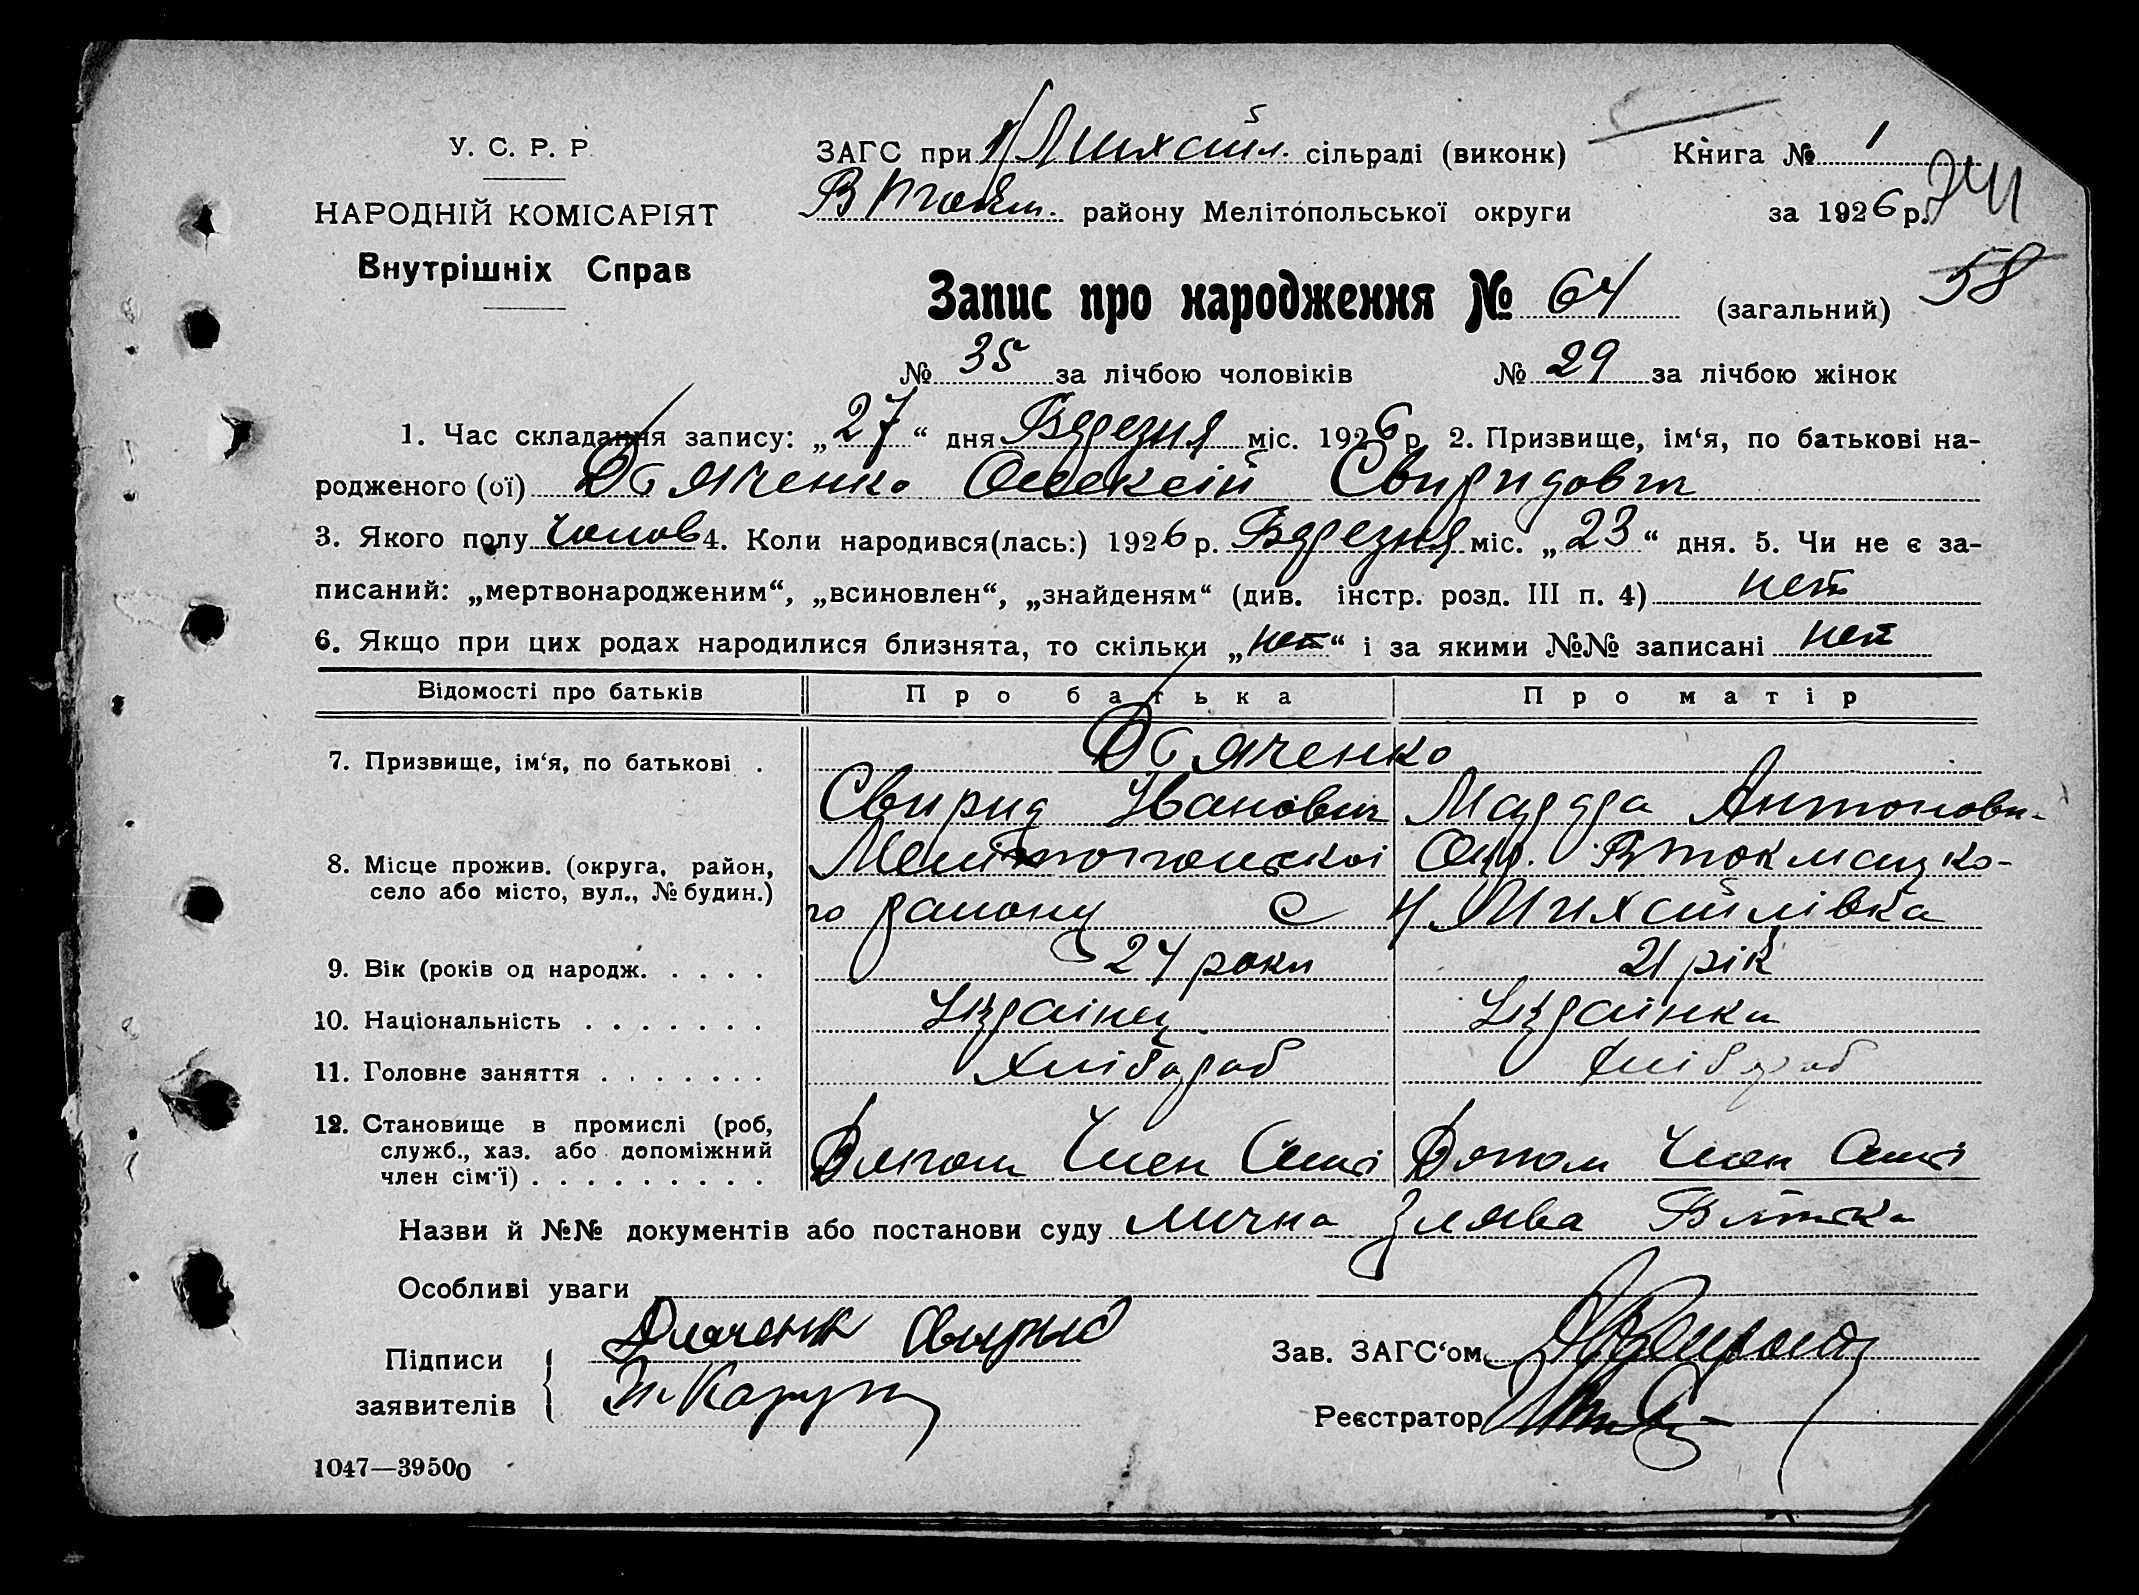 У. С. Р. Р.
НАРОДНІЙ КОМІСАРІЯТ
Внутрішніх Справ
ЗАГС при Н/Михайл. сільраді (виконк) Книга № 1
В Токм. району Мелітопольської округи за 1926 р.
58
Запис про народження № 64 (загальний)
№ 35 за лічбою чоловіків № 29 за лічбою жінок
1. Час складання запису: „27“ дня Березня міс. 1926 р. 2. Призвище, ім‘я, по батькові на-
родженого (ої) Дьяченко Олексій Свиридович
3. Якого полу Чолов 4. Коли народився(лась:) 1926 р. Березня міс. „23“ дня. 5. Чи не є за-
писаний: „мертвонародженим“, „всиновлен“, „знайденям“ (див. інстр. розд. III п. 4) нет
6. Якщо при цих родах народилися близнята, то скільки „нет“ і за якими №№ записані нет
Відомості про батьків Про батька Про матір
7. Призвище, ім‘я, по батькові . Дьяченко
Свирид Іванович Антонови-
8. Місце прожив. (округа, район, село або місто, вул., № будин.) Мелітопольскоі Окр. В токмацко-
го району с Н Михайлівка
9. Вік (років од народж. . . . . 24 роки 21 рік
10. Національність . . . . . . . Украінец Украінка
11. Головне заняття . . . . . . . Хлібораб Хлібораб
12. Становище в промислі (роб, служб., хаз. або допоміжний член сім‘ї) . . . . . . . . . Допом Член Сімі Допом Член Сімі
Назви й №№ документів або постанови суду Лична Заява Батька
Особливі уваги
Підписи заявителів Дяченк Свирид
Зав. ЗАГС‘ом
Реєстратор
1047—39500